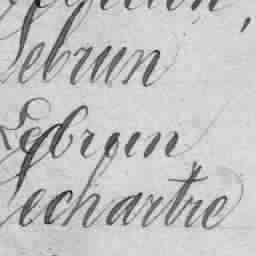 Lebrun
Lebrun
Lechartre